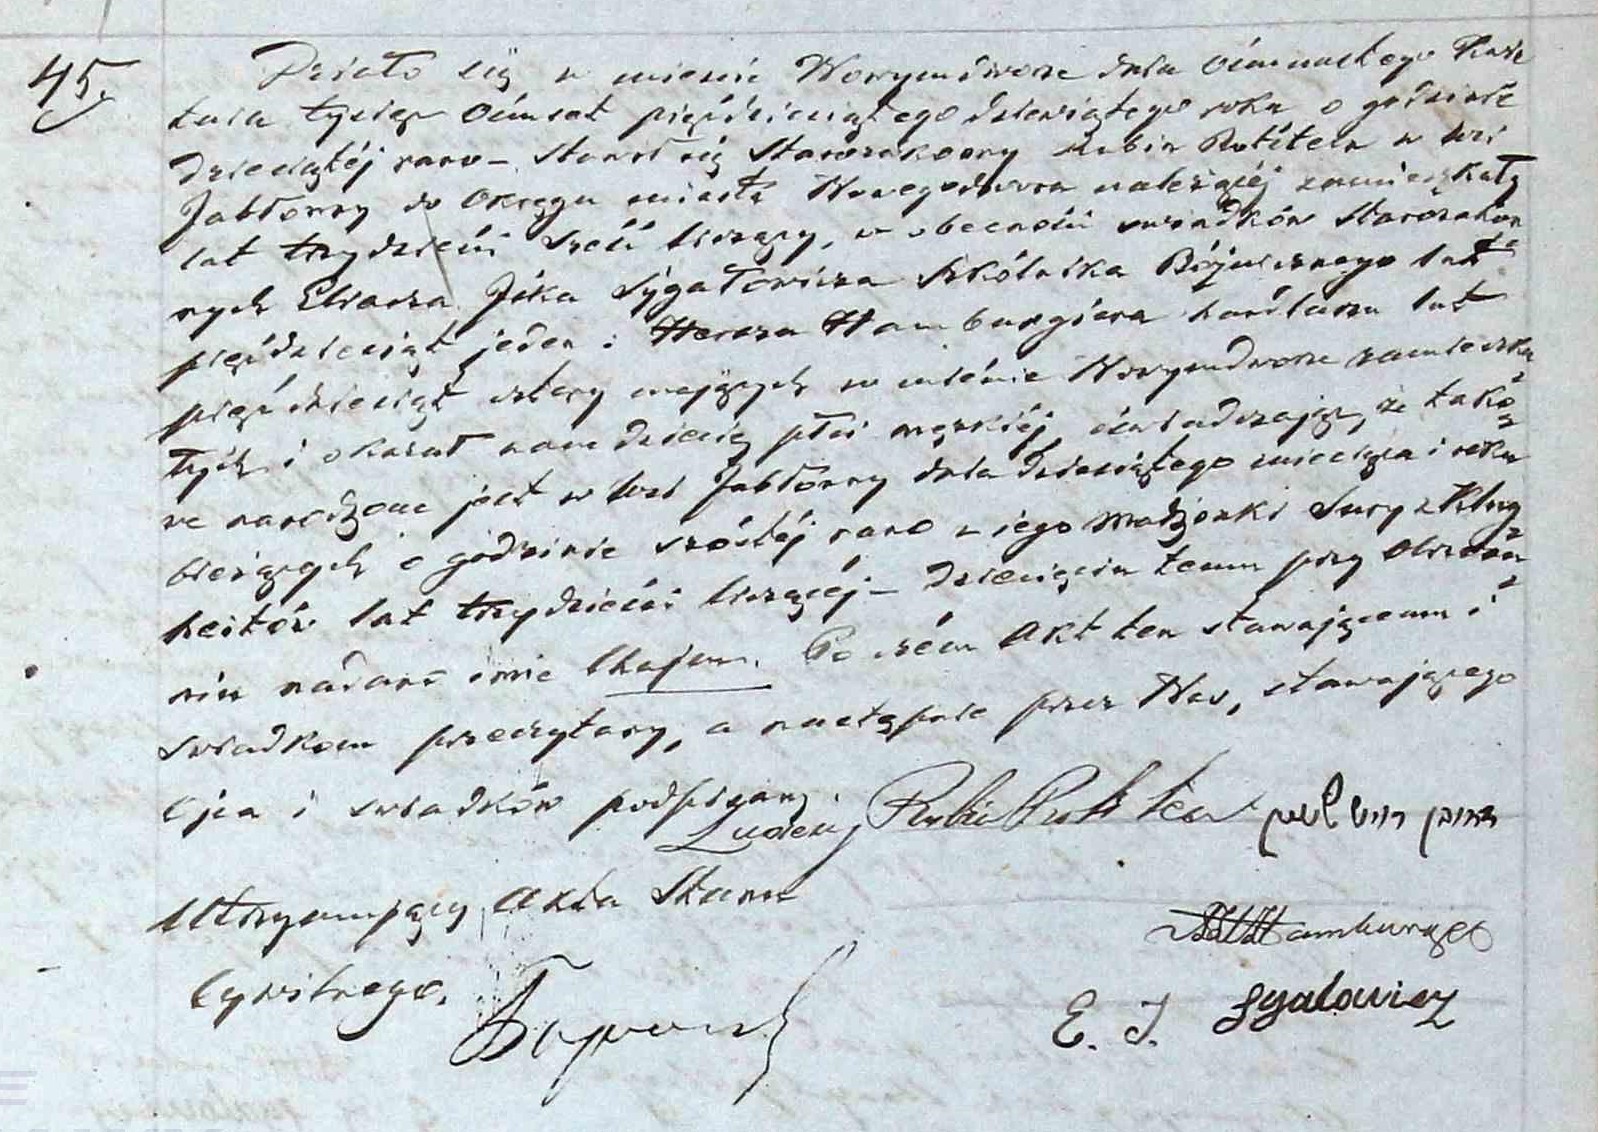 45.
Działo się w mieście Nowymdworze dnia ósmnastego Kwie
tnia tysiąc ósmset pięćdziesiątego dziewiątego roku o godzinie
dziesiątéj rano – Stawił się Starozakonny Rubin Rotsztein w wsi
Jabłonny do Okręgu miasta Nowegodwora należącéj zamieszkały
lat trzydzieści sześć liczący, w obecności swiadków Starozakon
nych Eliasza Jska Sygałowicza Szkólnika Bóźnicznego lat
pięćdziesiąt jeden i Hersza Hamburgiera handlarza lat
pięćdziesiąt cztery mających w mieście Nowymdworze zamieszka
łych i okazał nam dziecię płci męzkiéj oświadczając, że tako
we narodzone jest w wsi Jabłonny dnia dziesiątego miesiąca i roku
bieżących o godzinie szóstéj rano z jego Małżonki Sury z
lat trzydzieści liczącéj – dziecięciu temu przy obrzeza
niu nadano imie Chajm. Po czém Akt ten stawającemu i
swiadkom przeczytany, a następnie przez Nas, stawającego
Ojca i swiadków podpisany.
Rubin Rotstein ראובן
Utrzymujący Akta Stanu
Hamburger
Cywilnego.
E. J. Sygalowicz